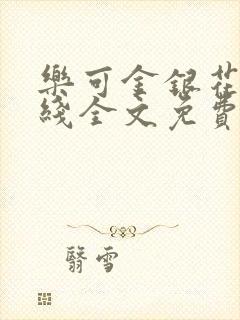 樂可金銀花
綫全文免費
翳雪